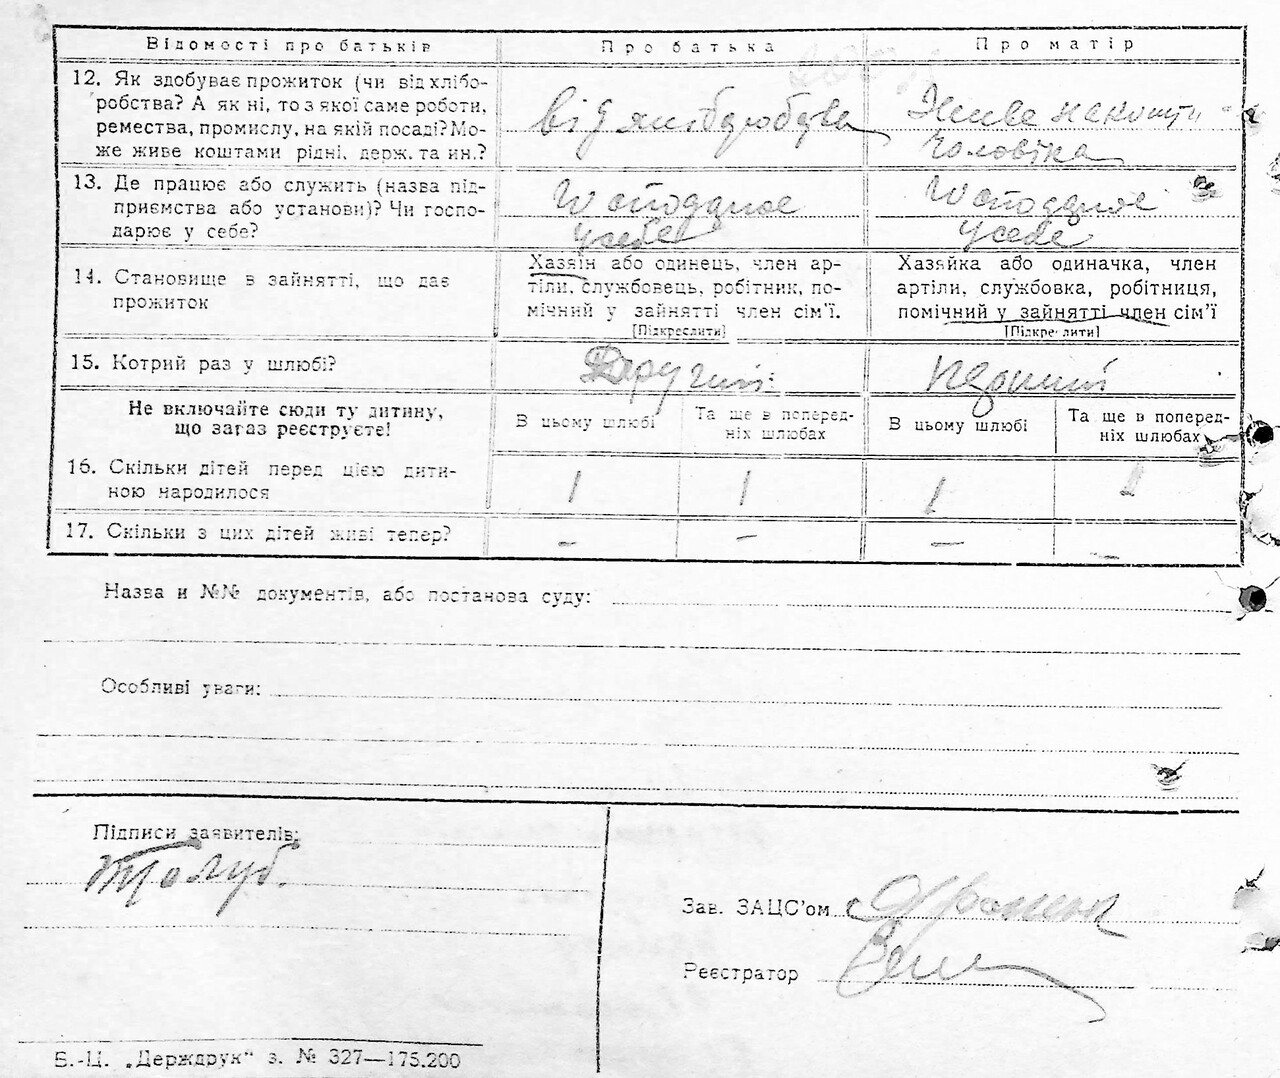 Відомості про батьків Про батька Про матір
12. Як здобуває прожиток (чи від хлібо-
робства? А як ні, то з якої саме роботи,
ремества, промислу, на якій посаді? Мо-
же живе коштами рідні, держ. та ин.?
від
Живе на кошти
чоловіка
13. Де працює або служить (назва під-
приємства або установи)? Чи госпо-
дарює у себе?
у себе
у себе
14. Становище в зайнятті, що дає
прожиток
Хазяїн або одинець, член ар-
тіли, службовець, робітник, по-
мічний у зайнятті член сім'ї.
[Підкреслити]
Хазяйка або одиначка, член
артіли, службовка, робітниця,
помічний у зайнятті член сім'ї
[Підкреслити]
15. Котрий раз у шлюбі?
Другий
Не включайте сюди ту дитину,
що загаз реєструєте!
В цьому шлюбі
Та ще в поперед-
ніх шлюбах
В цьому шлюбі
Та ще в поперед-
ніх шлюбах
16. Скільки дітей перед цією дити-
ною народилося
1 1 1 1
17. Скільки з цих дітей живі тепер?
– – – –
Назва и №№ документів, або постанова суду:
Особливі уваги:
Підписи заявителів:
Зав. ЗАЦС'ом
Реєстратор
Б.-Ц. „Держдрук" з. № 327—175.200